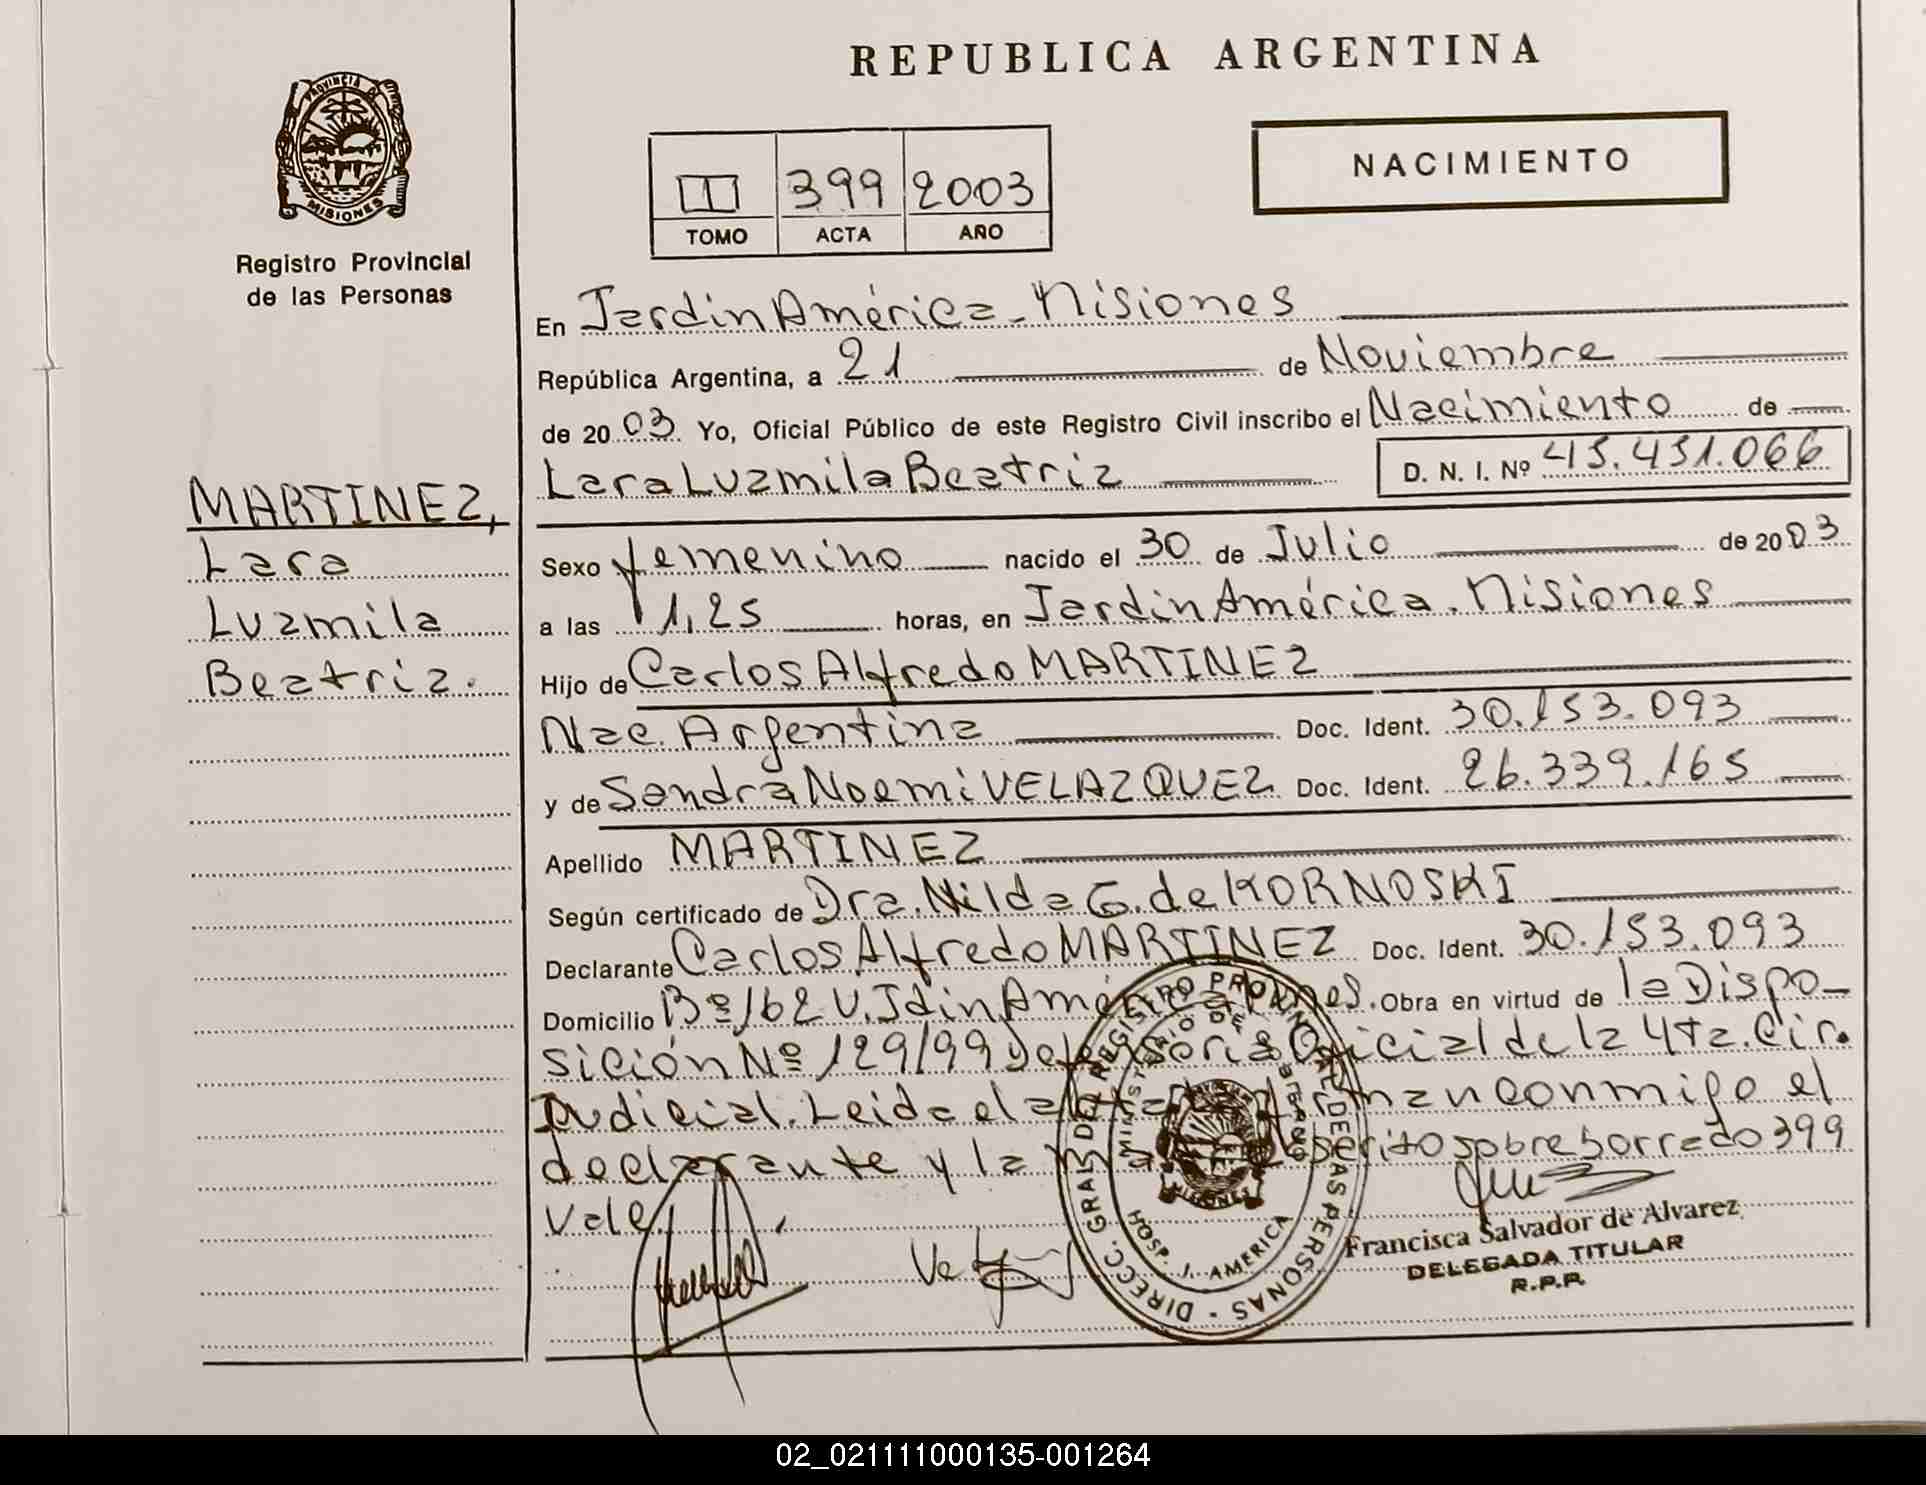 REPUBLICA ARGENTINA
PROVINCIA DE
MISIONES
Registro Provincial
de las Personas
NACIMIENTO
399 2003
TOMO ACTA AÑO
En Jardin América - Misiones
República Argentina, a 21 de Noviembre
de 2003 Yo, Oficial Público de este Registro Civil inscribo el Nacimiento de
Lara Luzmila Beatriz D. N. I. Nº 45.431.066
MARTINEZ,
Lara
Luzmila
Beatriz.
Sexo femenino nacido el 30 de Julio de 2003
a las 1,25 horas, en Jardin América. Misiones
Hijo de Carlos Alfredo MARTINEZ
Nac. Argentina Doc. Ident. 30.153.093
y de Sandra Noemi VELAZQUEZ Doc. Ident. 26.339.165
Apellido MARTINEZ
Según certificado de Dra. Nilda G. de KORNOSKI
Declarante Carlos Alfredo MARTINEZ Doc. Ident. 30.153.093
Domicilio Bº 162 V. Jdin América Mnes. Obra en virtud de la Dispo-
sición Nº 129/99 Defensoria Oficial de la 4ta. Cir.
Judicial. Leida el acta firman conmigo el
declarante y la sobre borrado 399
Vale.
DIRECC. GRAL. DEL REGISTRO PROVINCIAL DE LAS PERSONAS
MINISTERIO DE GOBIERNO
MISIONES
HOSP. J. AMERICA
Francisca Salvador de Alvarez
DELEGADA TITULAR
R.P.P.
02_021111000135-001264